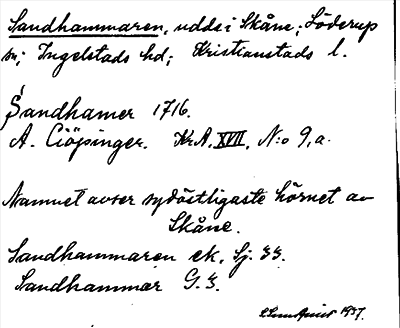 Sandhammaren, udde i Skåne; Löderup
sn; Ingelstads hd; Kristianstads l.
Sandhamer 1716.
A. Ciöpinger. Kr.A. XVII, N:o 9, a.
Namnet avser sydöstligaste hörnet av
Skåne.
Sandhammaren ek. Sj. 33.
Sandhammar G. 3.
1937.